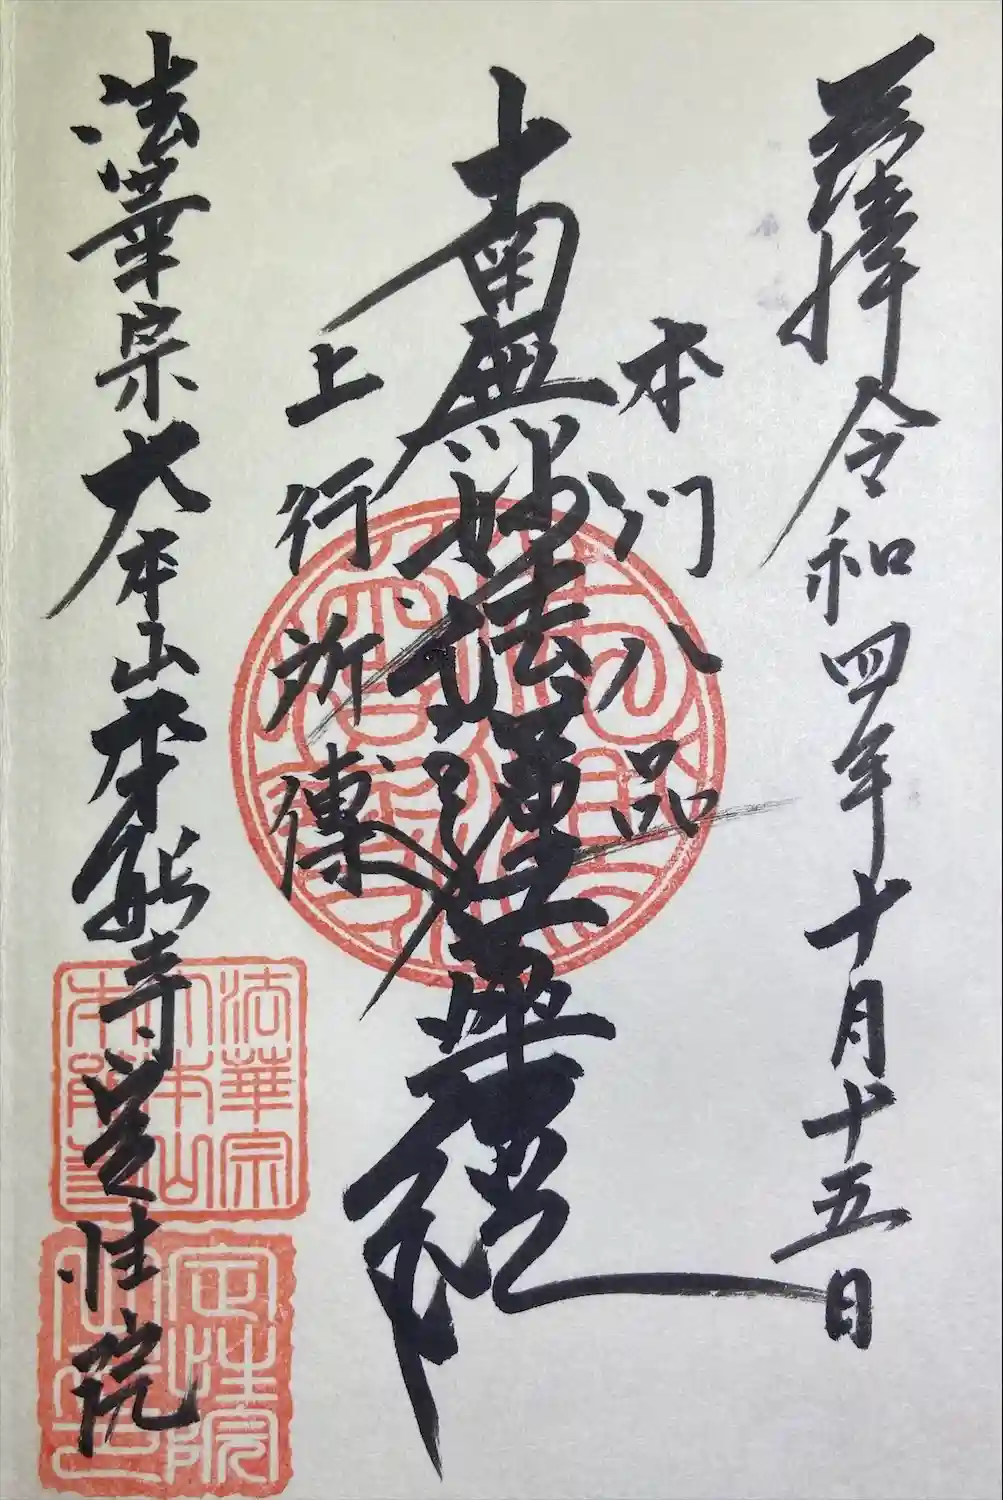 奉拝 令和四年十月十五日
本門八品
南無妙法蓮華経
上行所傳
法華宗大本山本能寺定性院
法華宗
大本山
本能寺
定性院